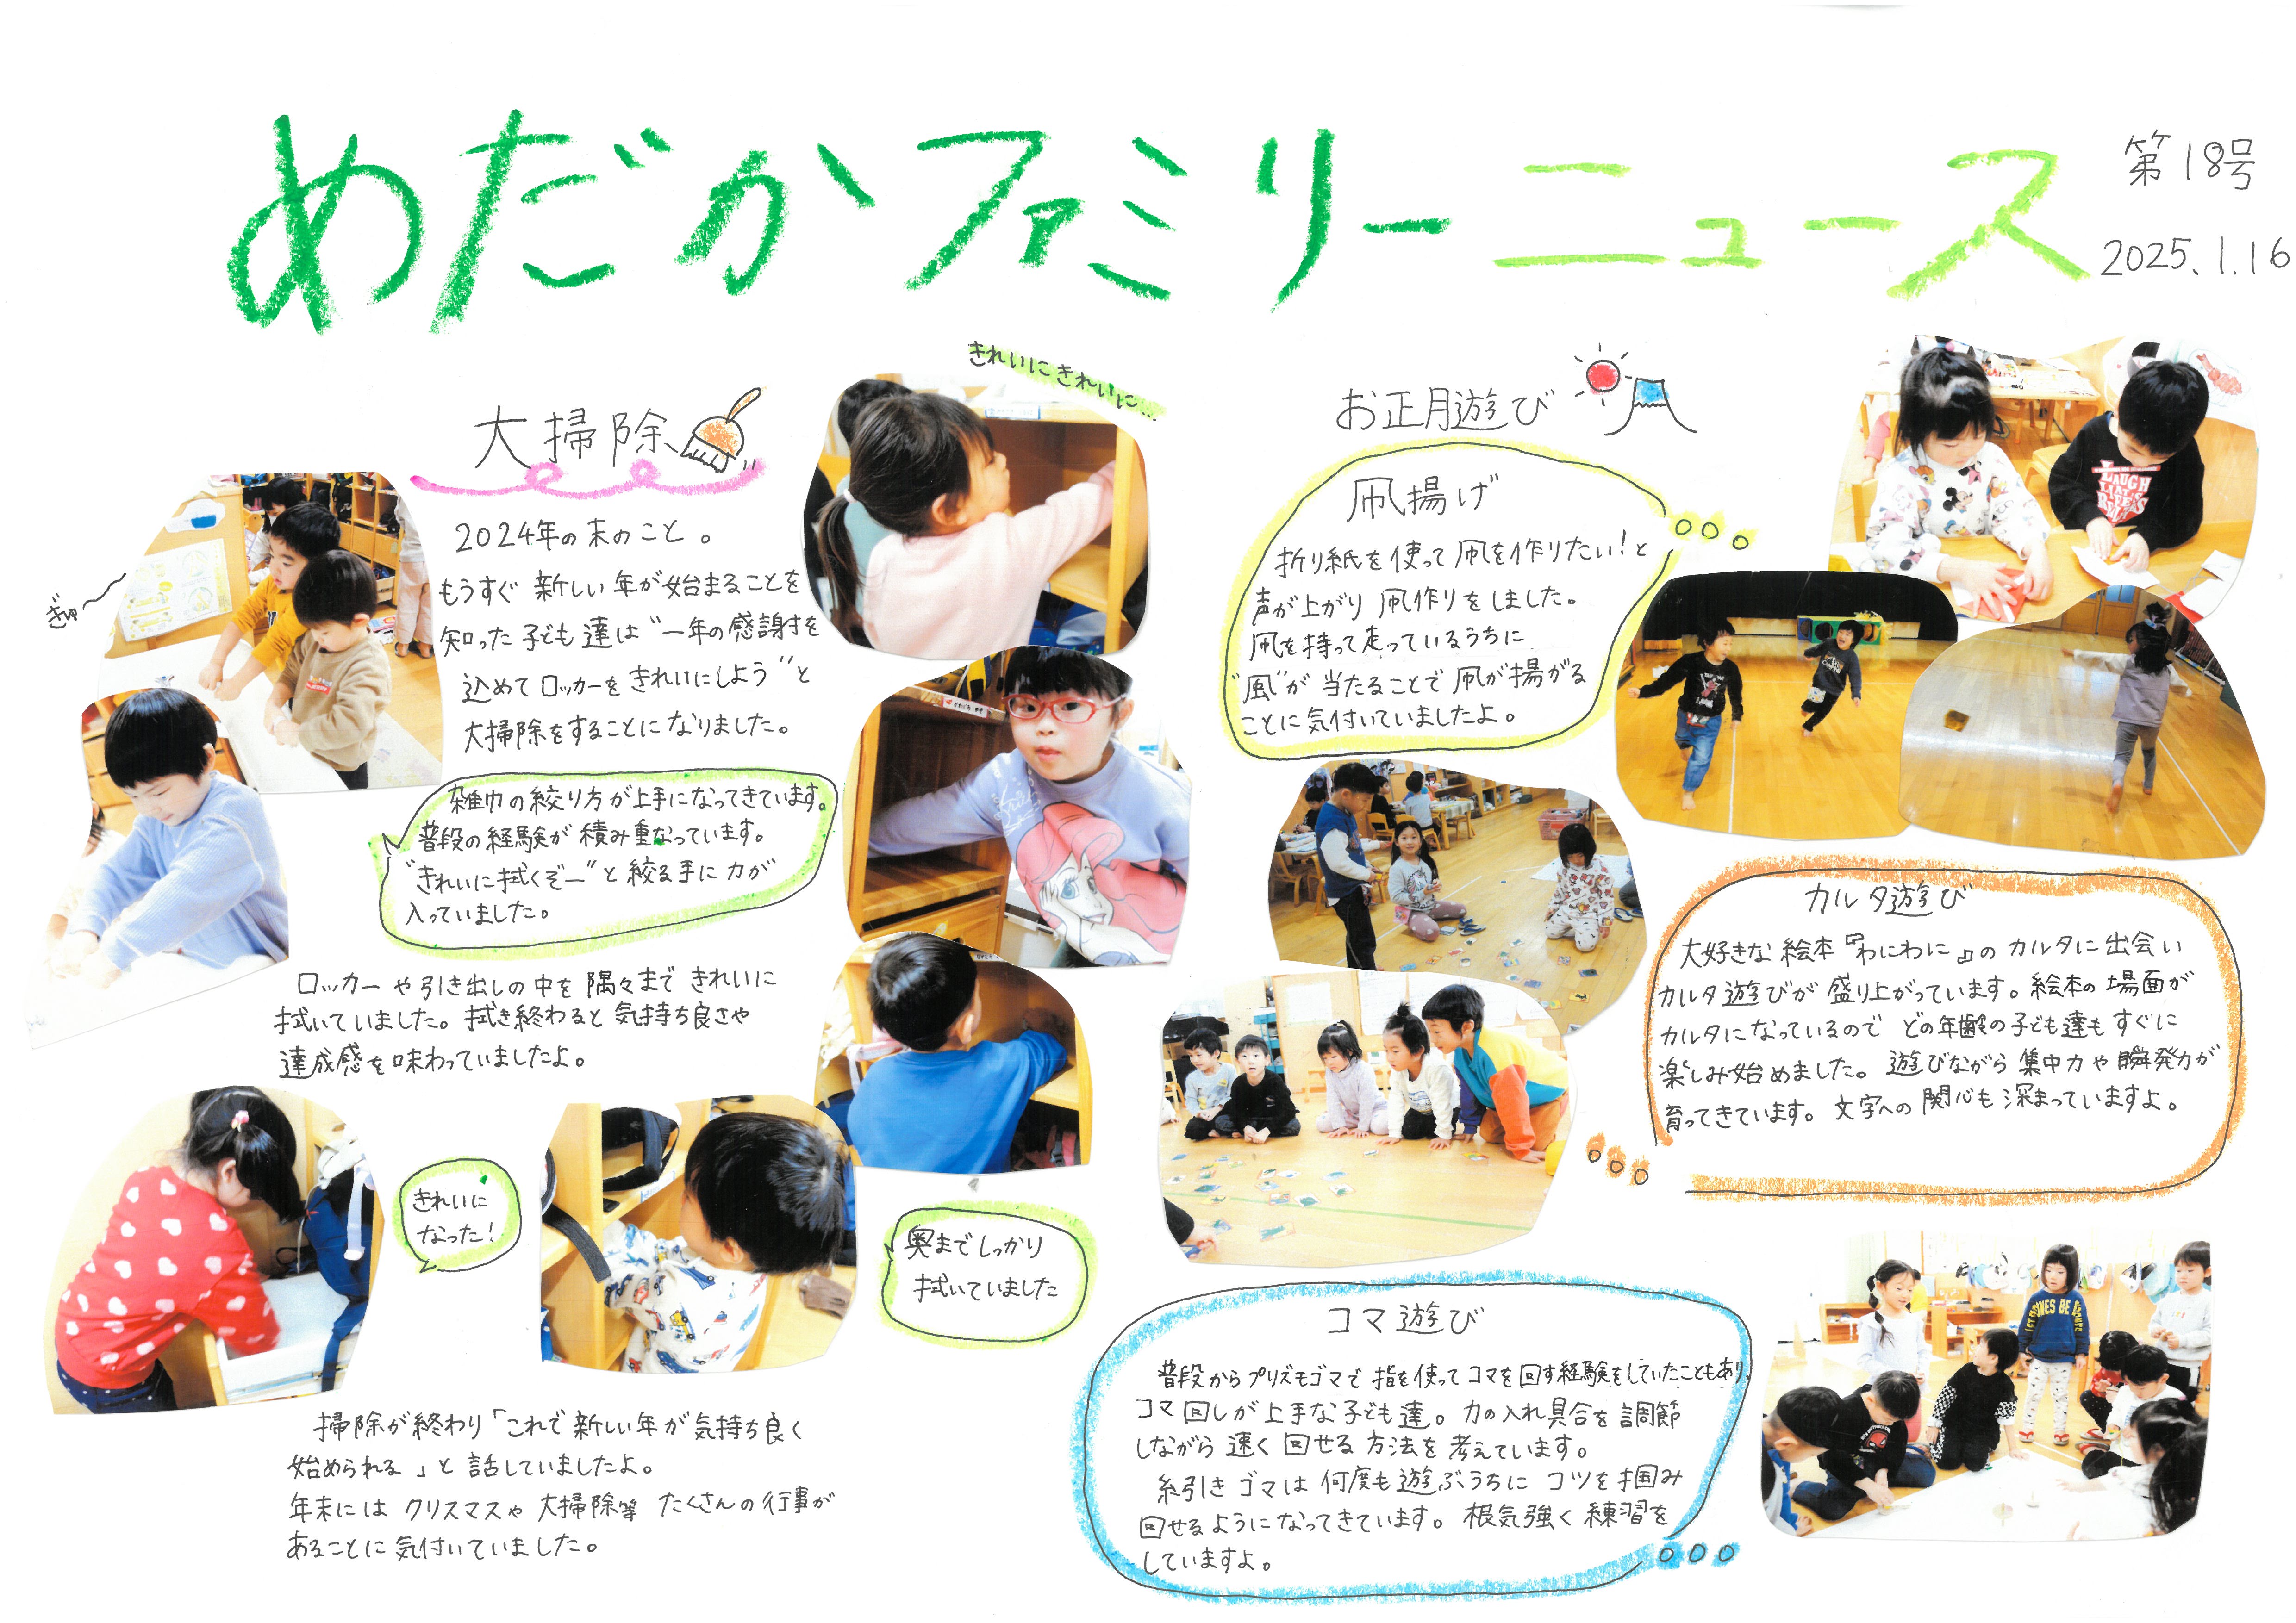 めだかファミリーニュース
第18号
2025.1.16
大掃除
2024年の末のこと。
もうすぐ新しい年が始まることを
知った子ども達は"一年の感謝を
込めてロッカーをきれいにしよう"と
大掃除をすることになりました。
ぎゅ〜
きれいにきれいに…
雑巾の絞り方が上手になってきています。
普段の経験が積み重なっています。
"きれいに拭くぞー"と絞る手に力が
入っていました。
ロッカーや引き出しの中を隅々まできれいに
拭いていました。拭き終わると気持ち良さや
達成感を味わっていましたよ。
きれいに
なった!
奥までしっかり
拭いていました
掃除が終わり「これで新しい年が気持ち良く
始められる」と話していましたよ。
年末にはクリスマスや大掃除等たくさんの行事が
あることに気付いていました。
お正月遊び
凧揚げ
折り紙を使って凧を作りたい!と
声が上がり凧作りをしました。
凧を持って走っているうちに
"風"が当たることで凧が揚がる
ことに気付いていましたよ。
LAUGH
カルタ遊び
大好きな絵本『わにわに』のカルタに出会い
カルタ遊びが盛り上がっています。絵本の場面が
カルタになっているのでどの年齢の子ども達もすぐに
楽しみ始めました。遊びながら集中力や瞬発力が
育ってきています。文字への関心も深まっていますよ。
コマ遊び
普段からプリズモゴマで指を使ってコマを回す経験をしていたこともあり、
コマ回しが上手な子ども達。力の入れ具合を調節
しながら速く回せる方法を考えています。
糸引きゴマは何度も遊ぶうちにコツを掴み
回せるようになってきています。根気強く練習を
していますよ。